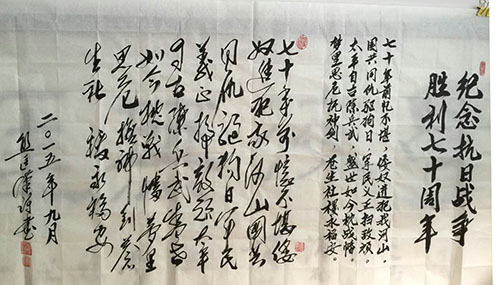 纪念抗日战争
胜利七十周年
七十年前忆不堪，倭奴进犯我河山，
国共同仇驱狗日，军民义正扫敌顽。
太平自古陈兵武，盛世如今抗战幡，
梦里思危神剑，苍生社稷永福安。
七十年前忆不堪倭
奴进犯我河山国共
同仇驱狗日军民
义正扫敌顽太平
自古陈兵武盛世
如今抗战幡梦里
思危神剑苍
生社稷永福安
二〇一五年九月